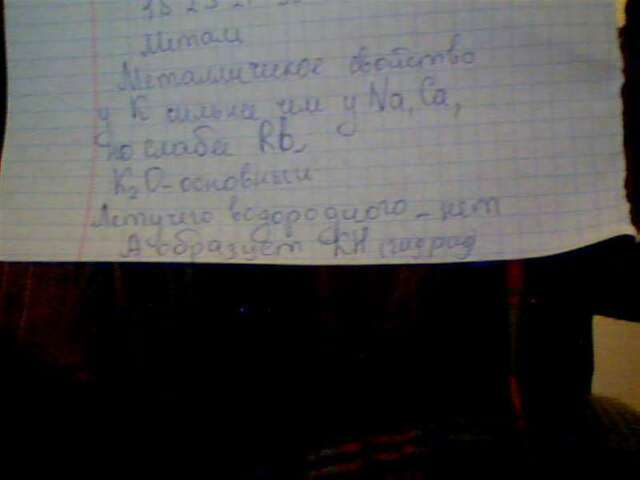 Метал
Металличиское свойство
у К сильнее чем у Na, Ca,
но слабее Rb,
K₂O-основный
Летучего водородного - нет
А образует KH (гидрид